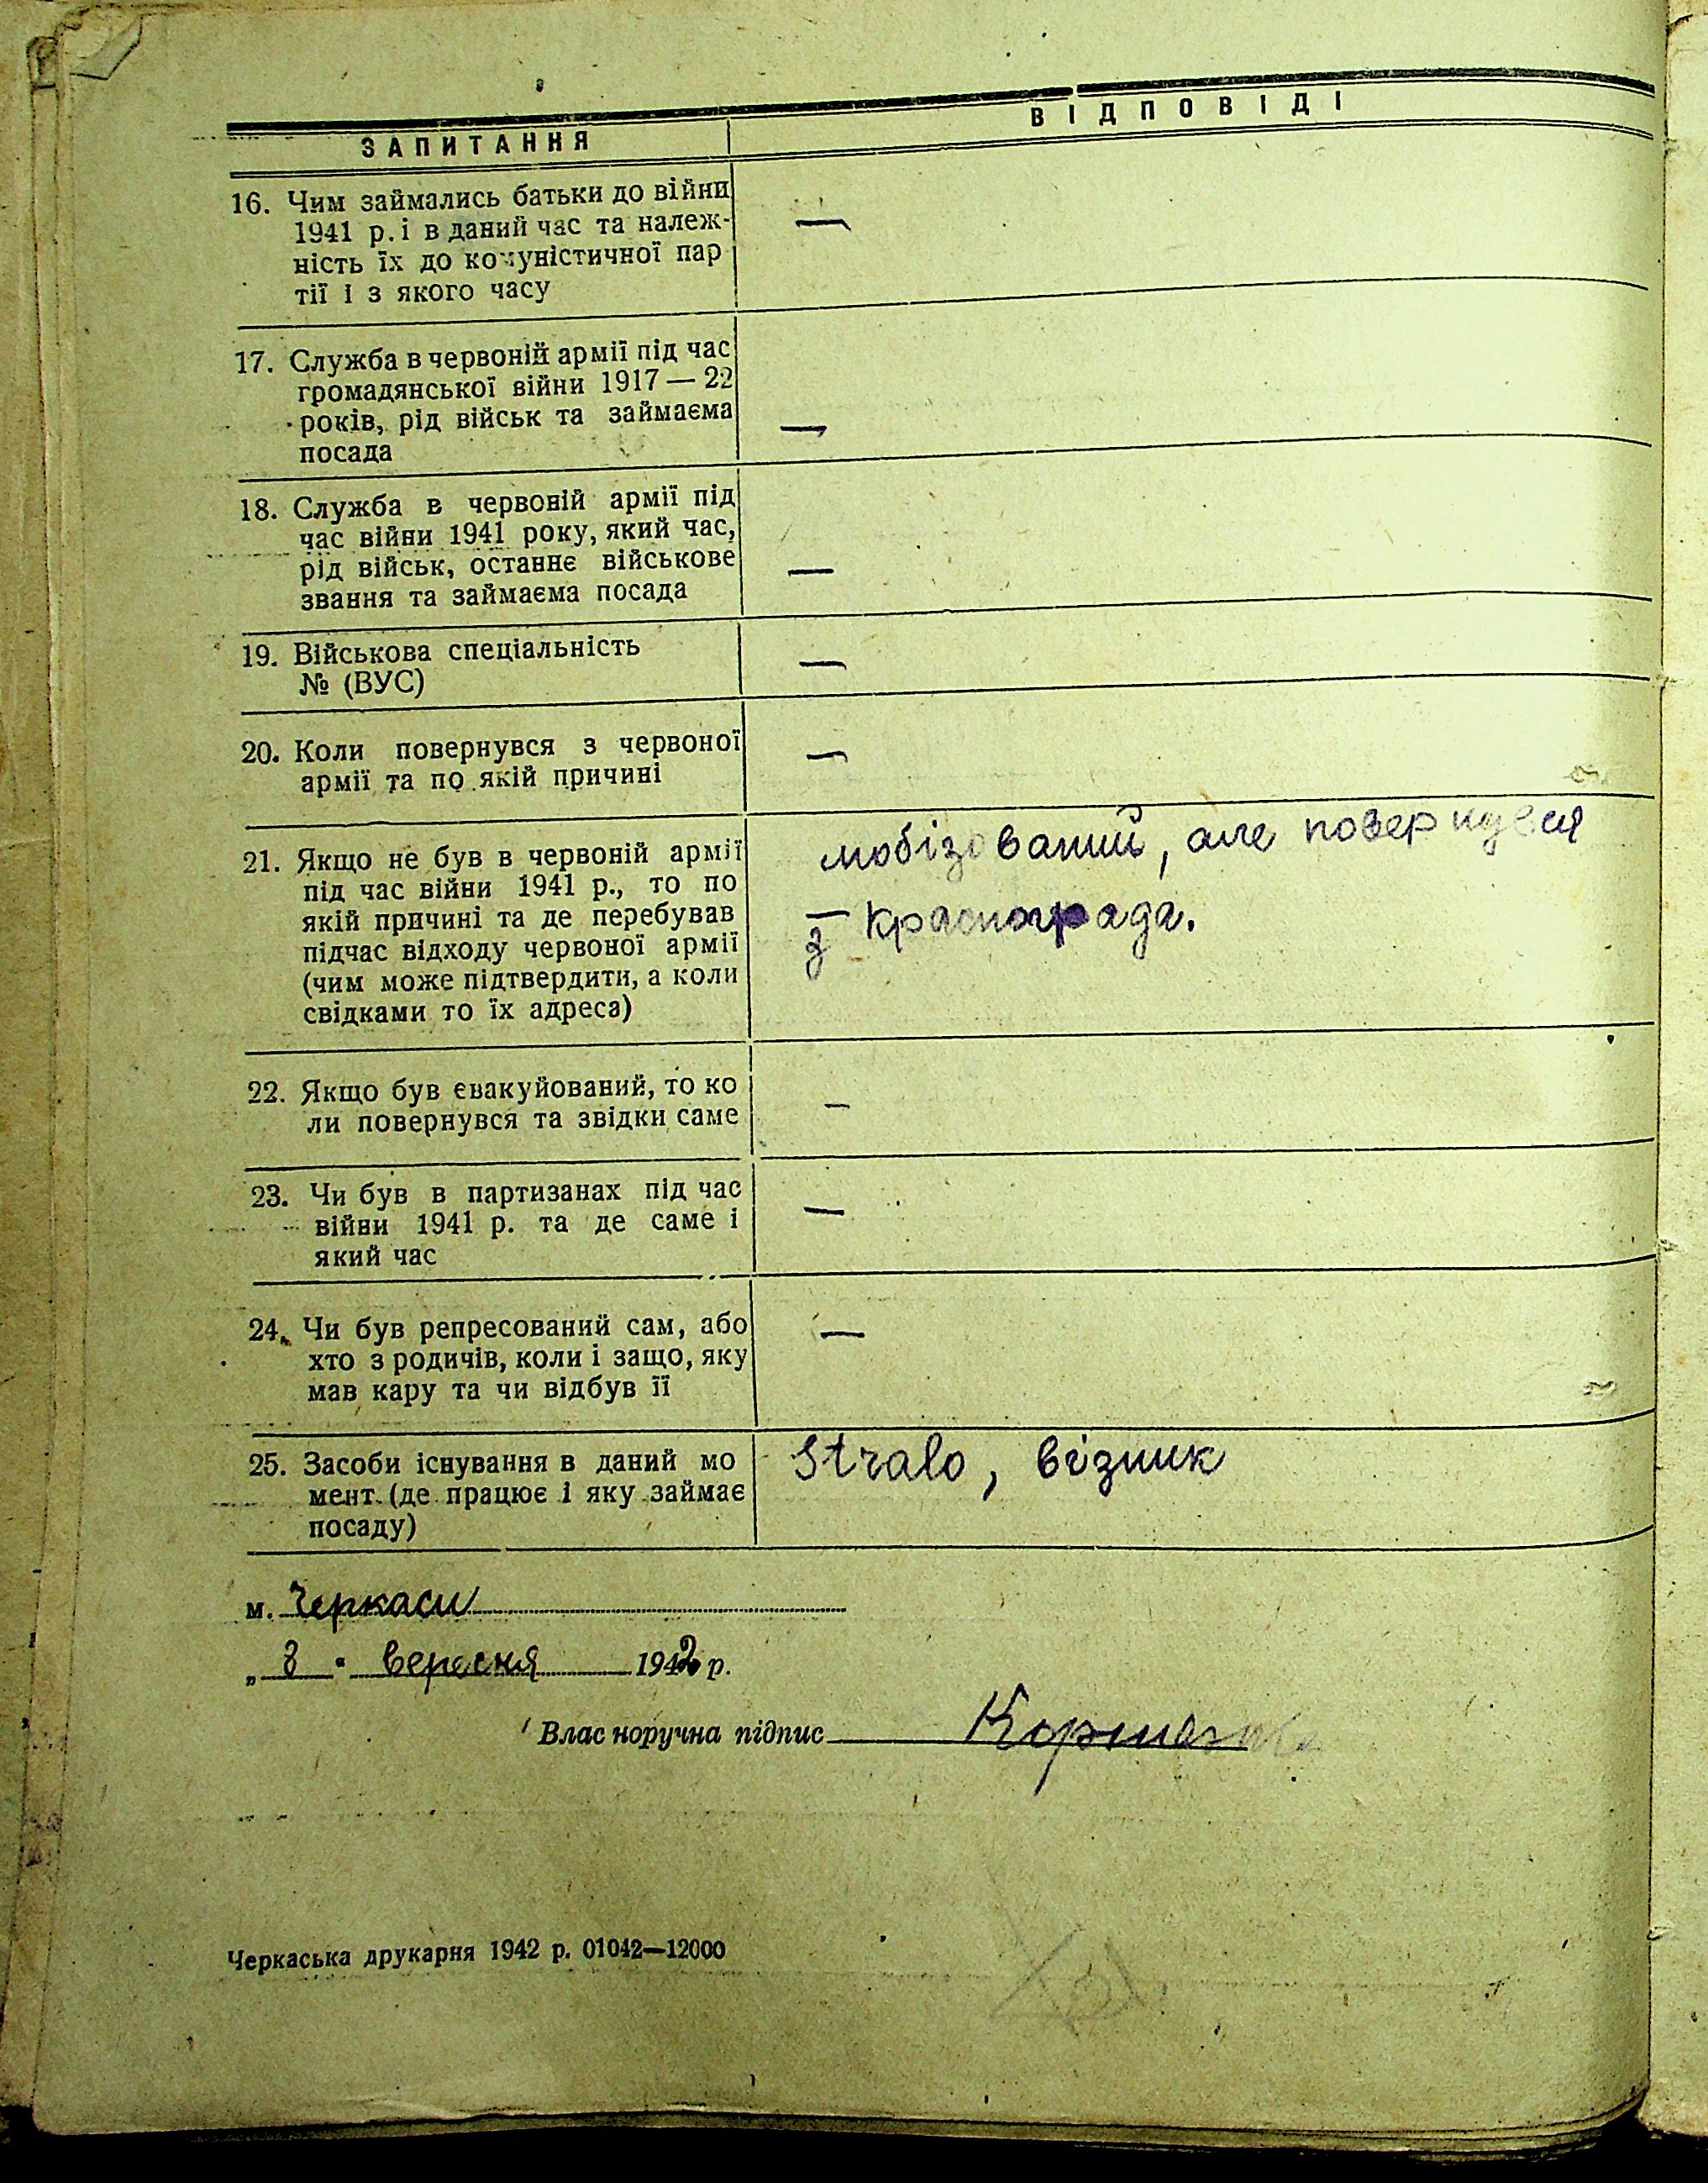 ЗАПИТАННЯ
ВІДПОВІДІ
16. Чим займались батьки до війни
1941 р. і в даний час та належ-
ність їх до комуністичної пар
тії і з якого часу
—
17. Служба в червоній армії під час
громадянської війни 1917 — 22
років, рід військ та займаєма
посада
—
18. Служба в червоній армії під
час війни 1941 року, який час,
рід військ, останнє військове
звання та займаєма посада
—
19. Військова спеціальність
№ (ВУС)
—
20. Коли повернувся з червоної
армії та по якій причині
—
21. Якщо не був в червоній армії
під час війни 1941 р., то по
якій причині та де перебував
підчас відходу червоної армії
(чим може підтвердити, а коли
свідками то їх адреса)
мобізований, але повернувся
з Краснограда.
22. Якщо був евакуйований, то ко
ли повернувся та звідки саме
—
23. Чи був в партизанах під час
війни 1941 р. та де саме і
який час
—
24. Чи був репресований сам, або
хто з родичів, коли і защо, яку
мав кару та чи відбув її
—
25. Засоби існування в даний мо
мент (де працює і яку займає
посаду)
Stralo, візник
м. Черкаси
„ 8 " вересня 1942 р.
Влас норучна підпис
Черкаська друкарня 1942 р. 01042—12000